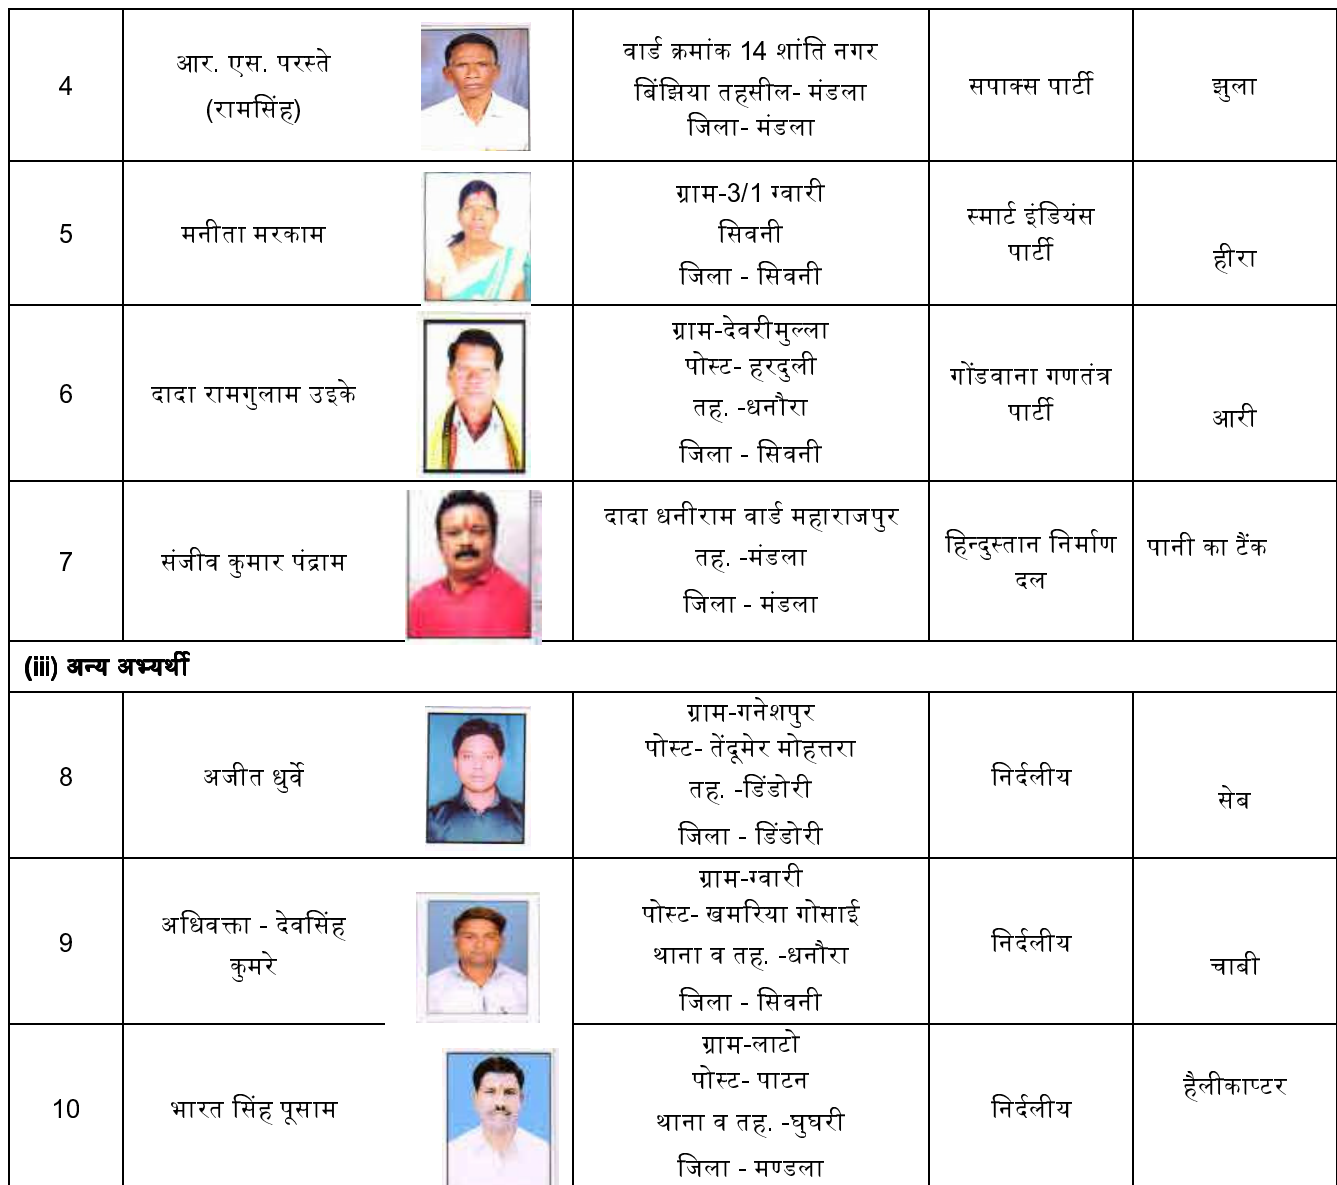 4
आर. एस. परस्ते
(रामसिंह)
वार्ड क्रमांक 14 शांति नगर
बिंझिया तहसील- मंडला
जिला- मंडला
सपाक्स पार्टी
झुला
5
मनीता मरकाम
ग्राम-3/1 ग्वारी
सिवनी
जिला - सिवनी
स्मार्ट इंडियंस
पार्टी
हीरा
6
दादा रामगुलाम उइके
ग्राम-देवरीमुल्ला
पोस्ट- हरदुली
तह. -धनौरा
जिला - सिवनी
गोंडवाना गणतंत्र
पार्टी
आरी
7
संजीव कुमार पंद्राम
दादा धनीराम वार्ड महाराजपुर
तह. -मंडला
जिला - मंडला
हिन्दुस्तान निर्माण
दल
पानी का टैंक
(iii) अन्य अभ्यर्थी
8
अजीत धुर्वे
ग्राम-गनेशपुर
पोस्ट- तेंदूमेर मोहत्तरा
तह. -डिंडोरी
जिला - डिंडोरी
निर्दलीय
सेब
9
अधिवक्ता - देवसिंह
कुमरे
ग्राम-ग्वारी
पोस्ट- खमरिया गोसाई
थाना व तह. -धनौरा
जिला - सिवनी
निर्दलीय
चाबी
10
भारत सिंह पूसाम
ग्राम-लाटो
पोस्ट- पाटन
थाना व तह. -घुघरी
जिला - मण्डला
निर्दलीय
हैलीकाप्टर